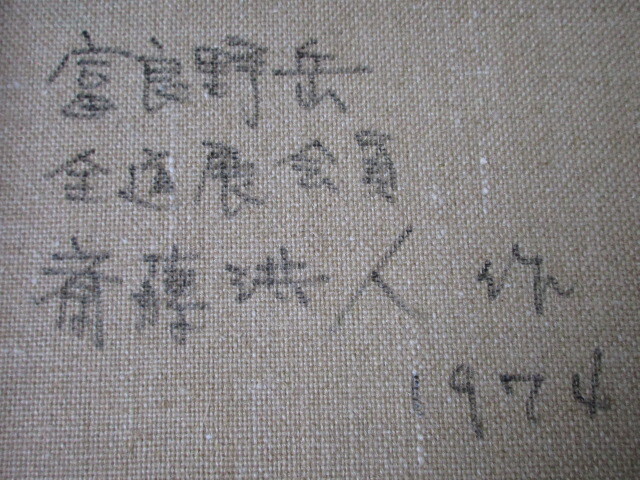 富良野岳
全道展会員
斎藤洪人 作
1974